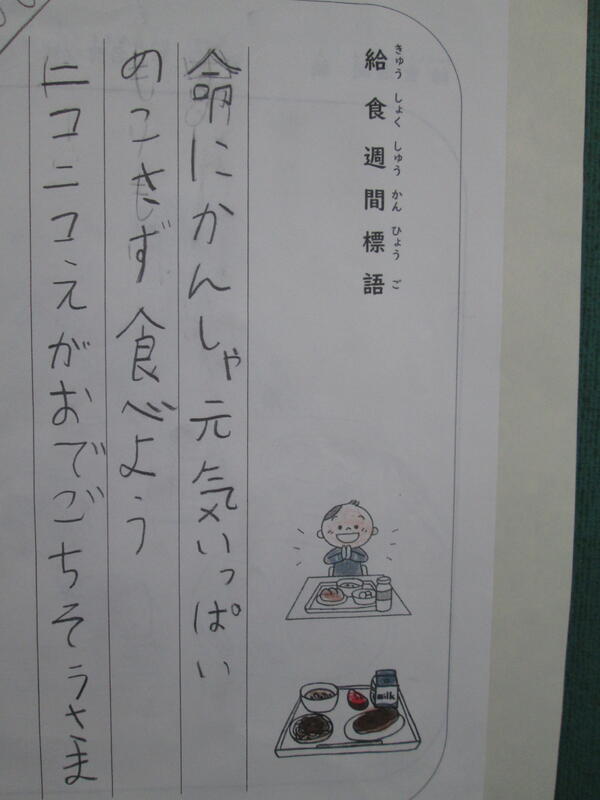 きゅう しょく しゅう かん ひょう ご
給食週間標語
命にかんしゃ元気いっぱい
のこさず食べよう
ニコニコえがおでごちそうさま
milk